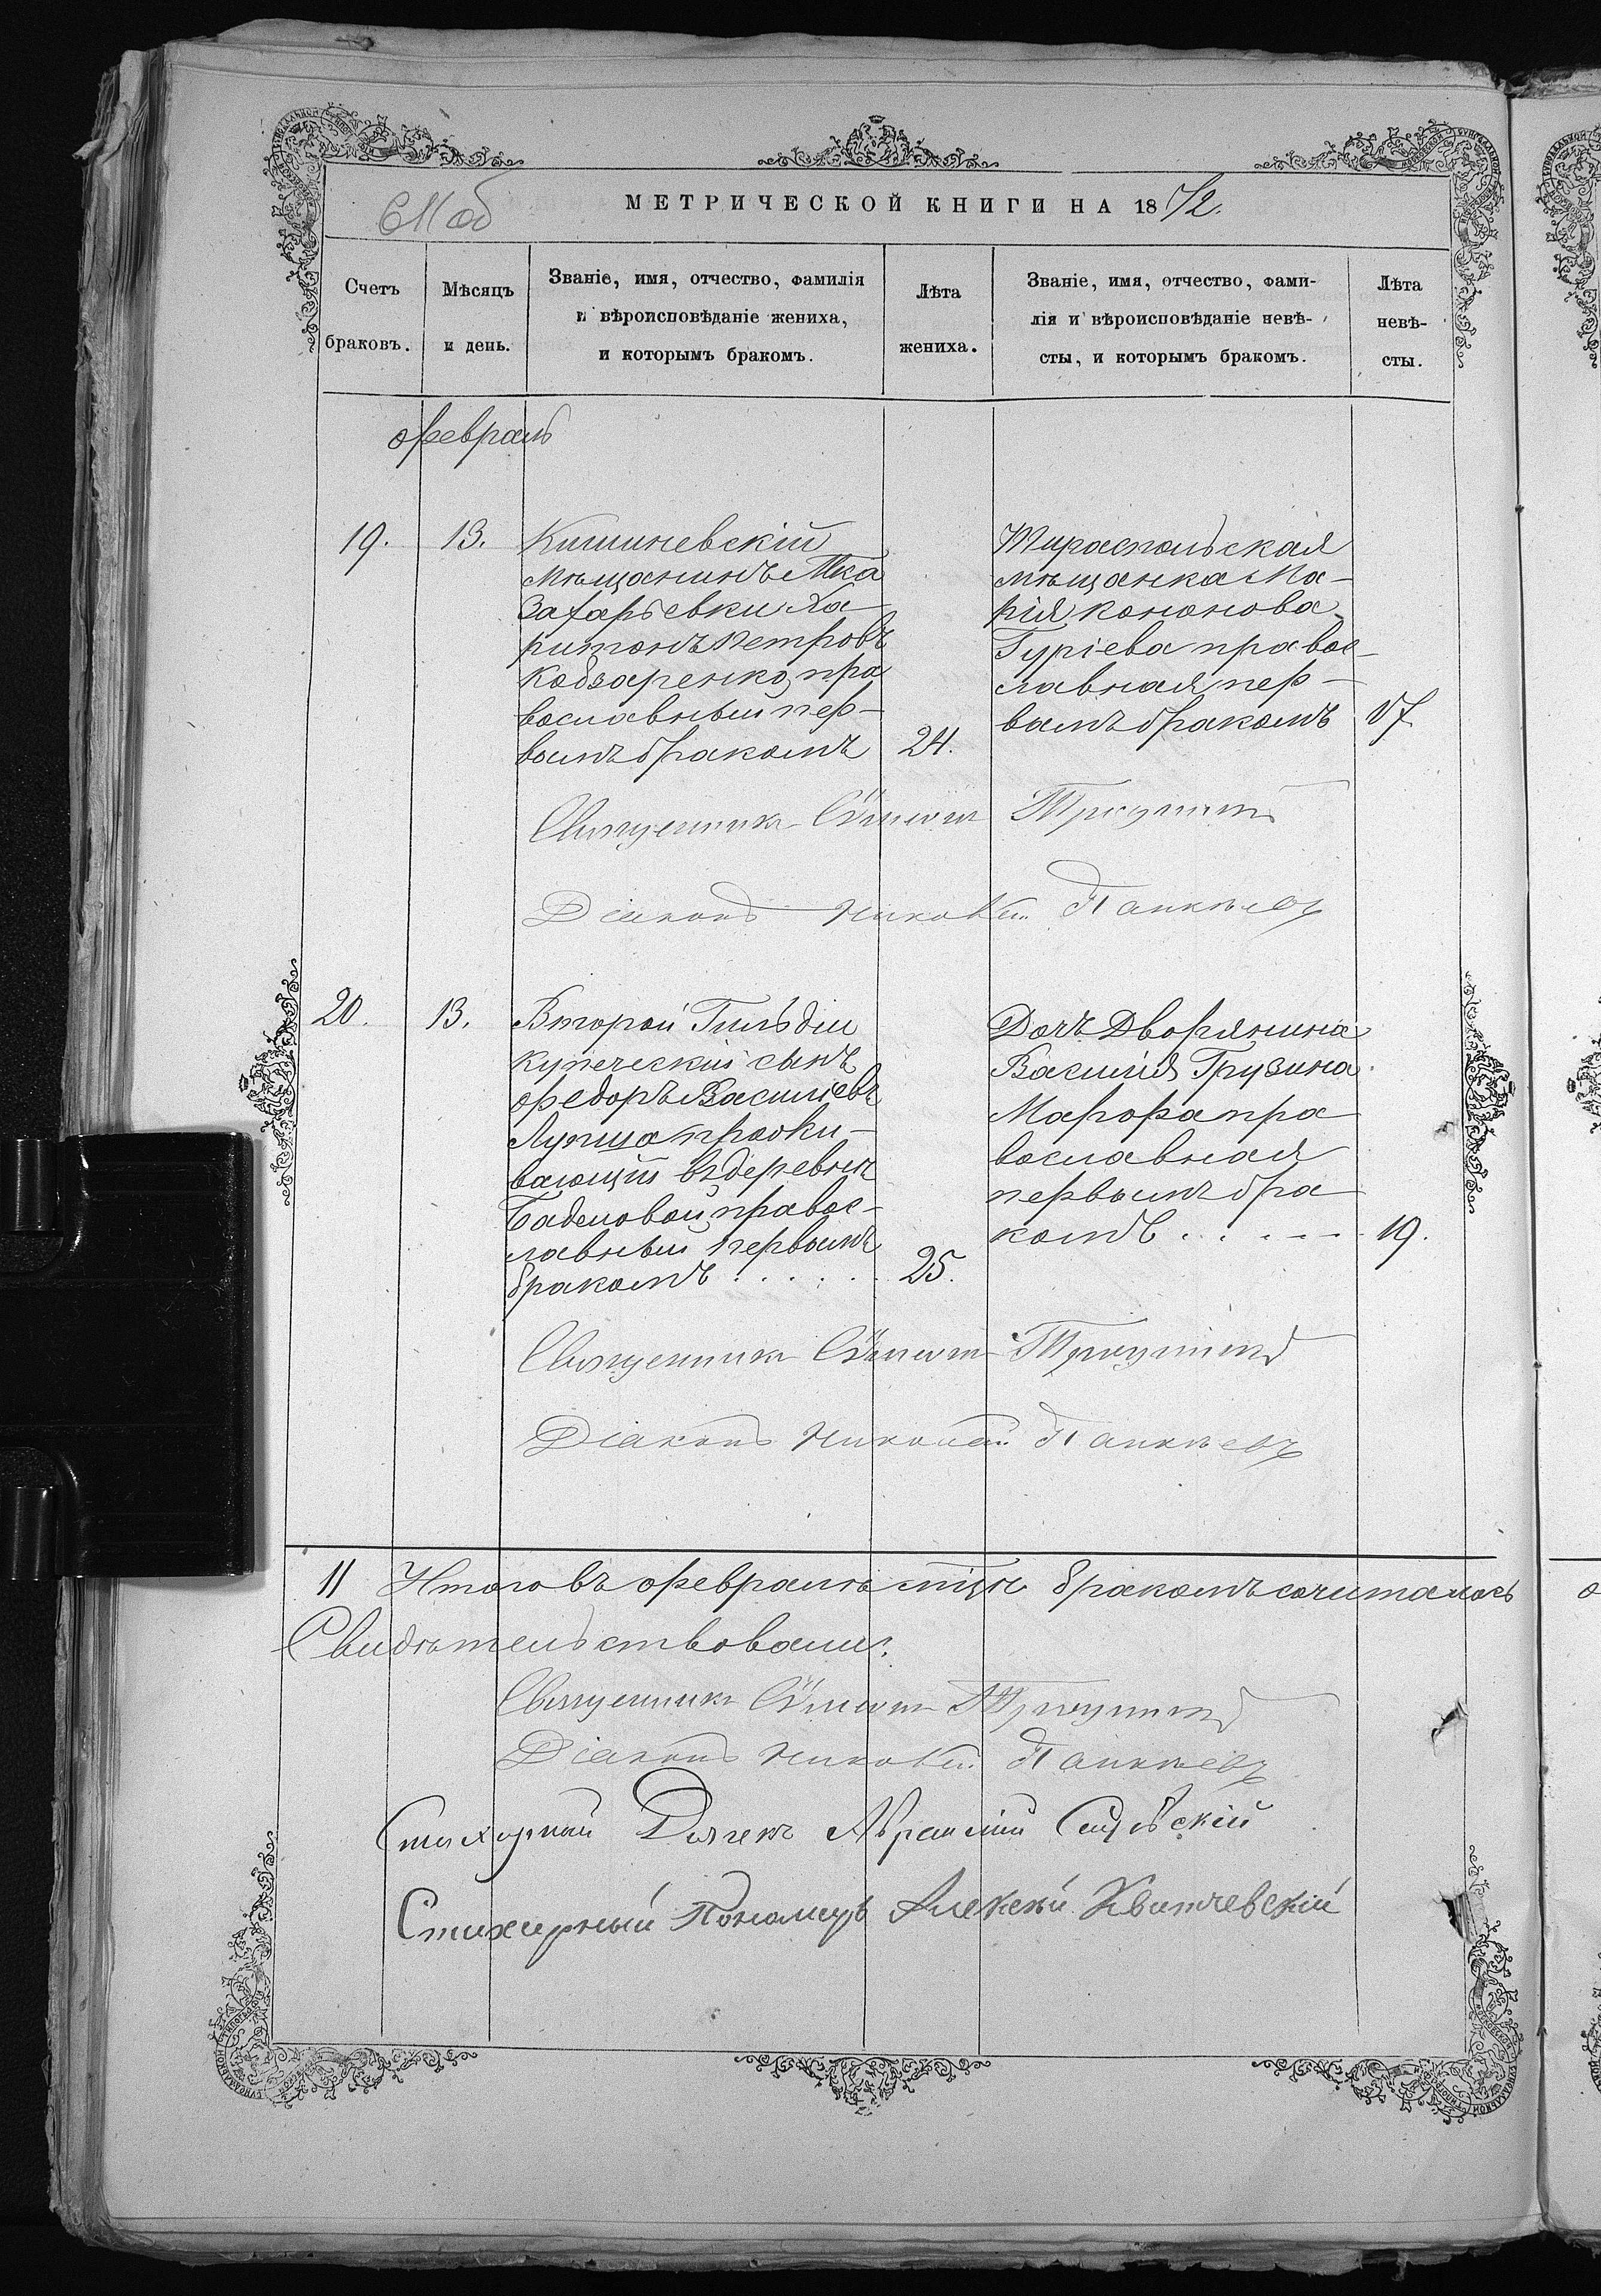 МЕТРИЧЕСКОЙ КНИГИ НА 1872.
Счетъ
браковъ.
Мѣсяцъ
и день.
Званіе, имя, отчество, фамилія
и вѣроисповѣданіе жениха,
и которымъ бракомъ.
Лѣта
жениха.
Званіе, имя, отчество, фами-
лія и вѣроисповѣданіе невѣ-
сты, и которымъ бракомъ.
Лѣта
невѣ-
сты.
Февраль
19.
13.
Кишиневскій
мѣщанинъ М-ка
Захарьевки Ха-
ритонъ Петровъ
Кобзаренко, пра
вославный пер-
вымъ бракомъ
24.
Тираспольская
мѣщанка Ма-
рія Кононова
Гуріева правос-
лавная пер-
вымъ бракомъ
17.
Священникъ
Діаконъ Николай Панкѣевъ
20.
13.
Второй Гильдіи
купеческій сынъ
Федоръ Васильевъ
Лупша прожи-
вающій въ деревнѣ
правос-
лавный первымъ
бракомъ . . . . . .
25.
Дочь Дворянина
Василія Грузина
Марфа пра
вославная
первымъ бра
комъ . . . . .
19.
Священникъ
Діаконъ Николай Панкѣевъ
11 Итого въ Февралѣ м-цѣ бракомъ сочиталось
Свидѣтельствовали:
Священникъ
Діаконъ Николай Панкѣевъ
Стихарный Дьячекъ
Стихарный Пономарь Алексѣй Квитчевскій